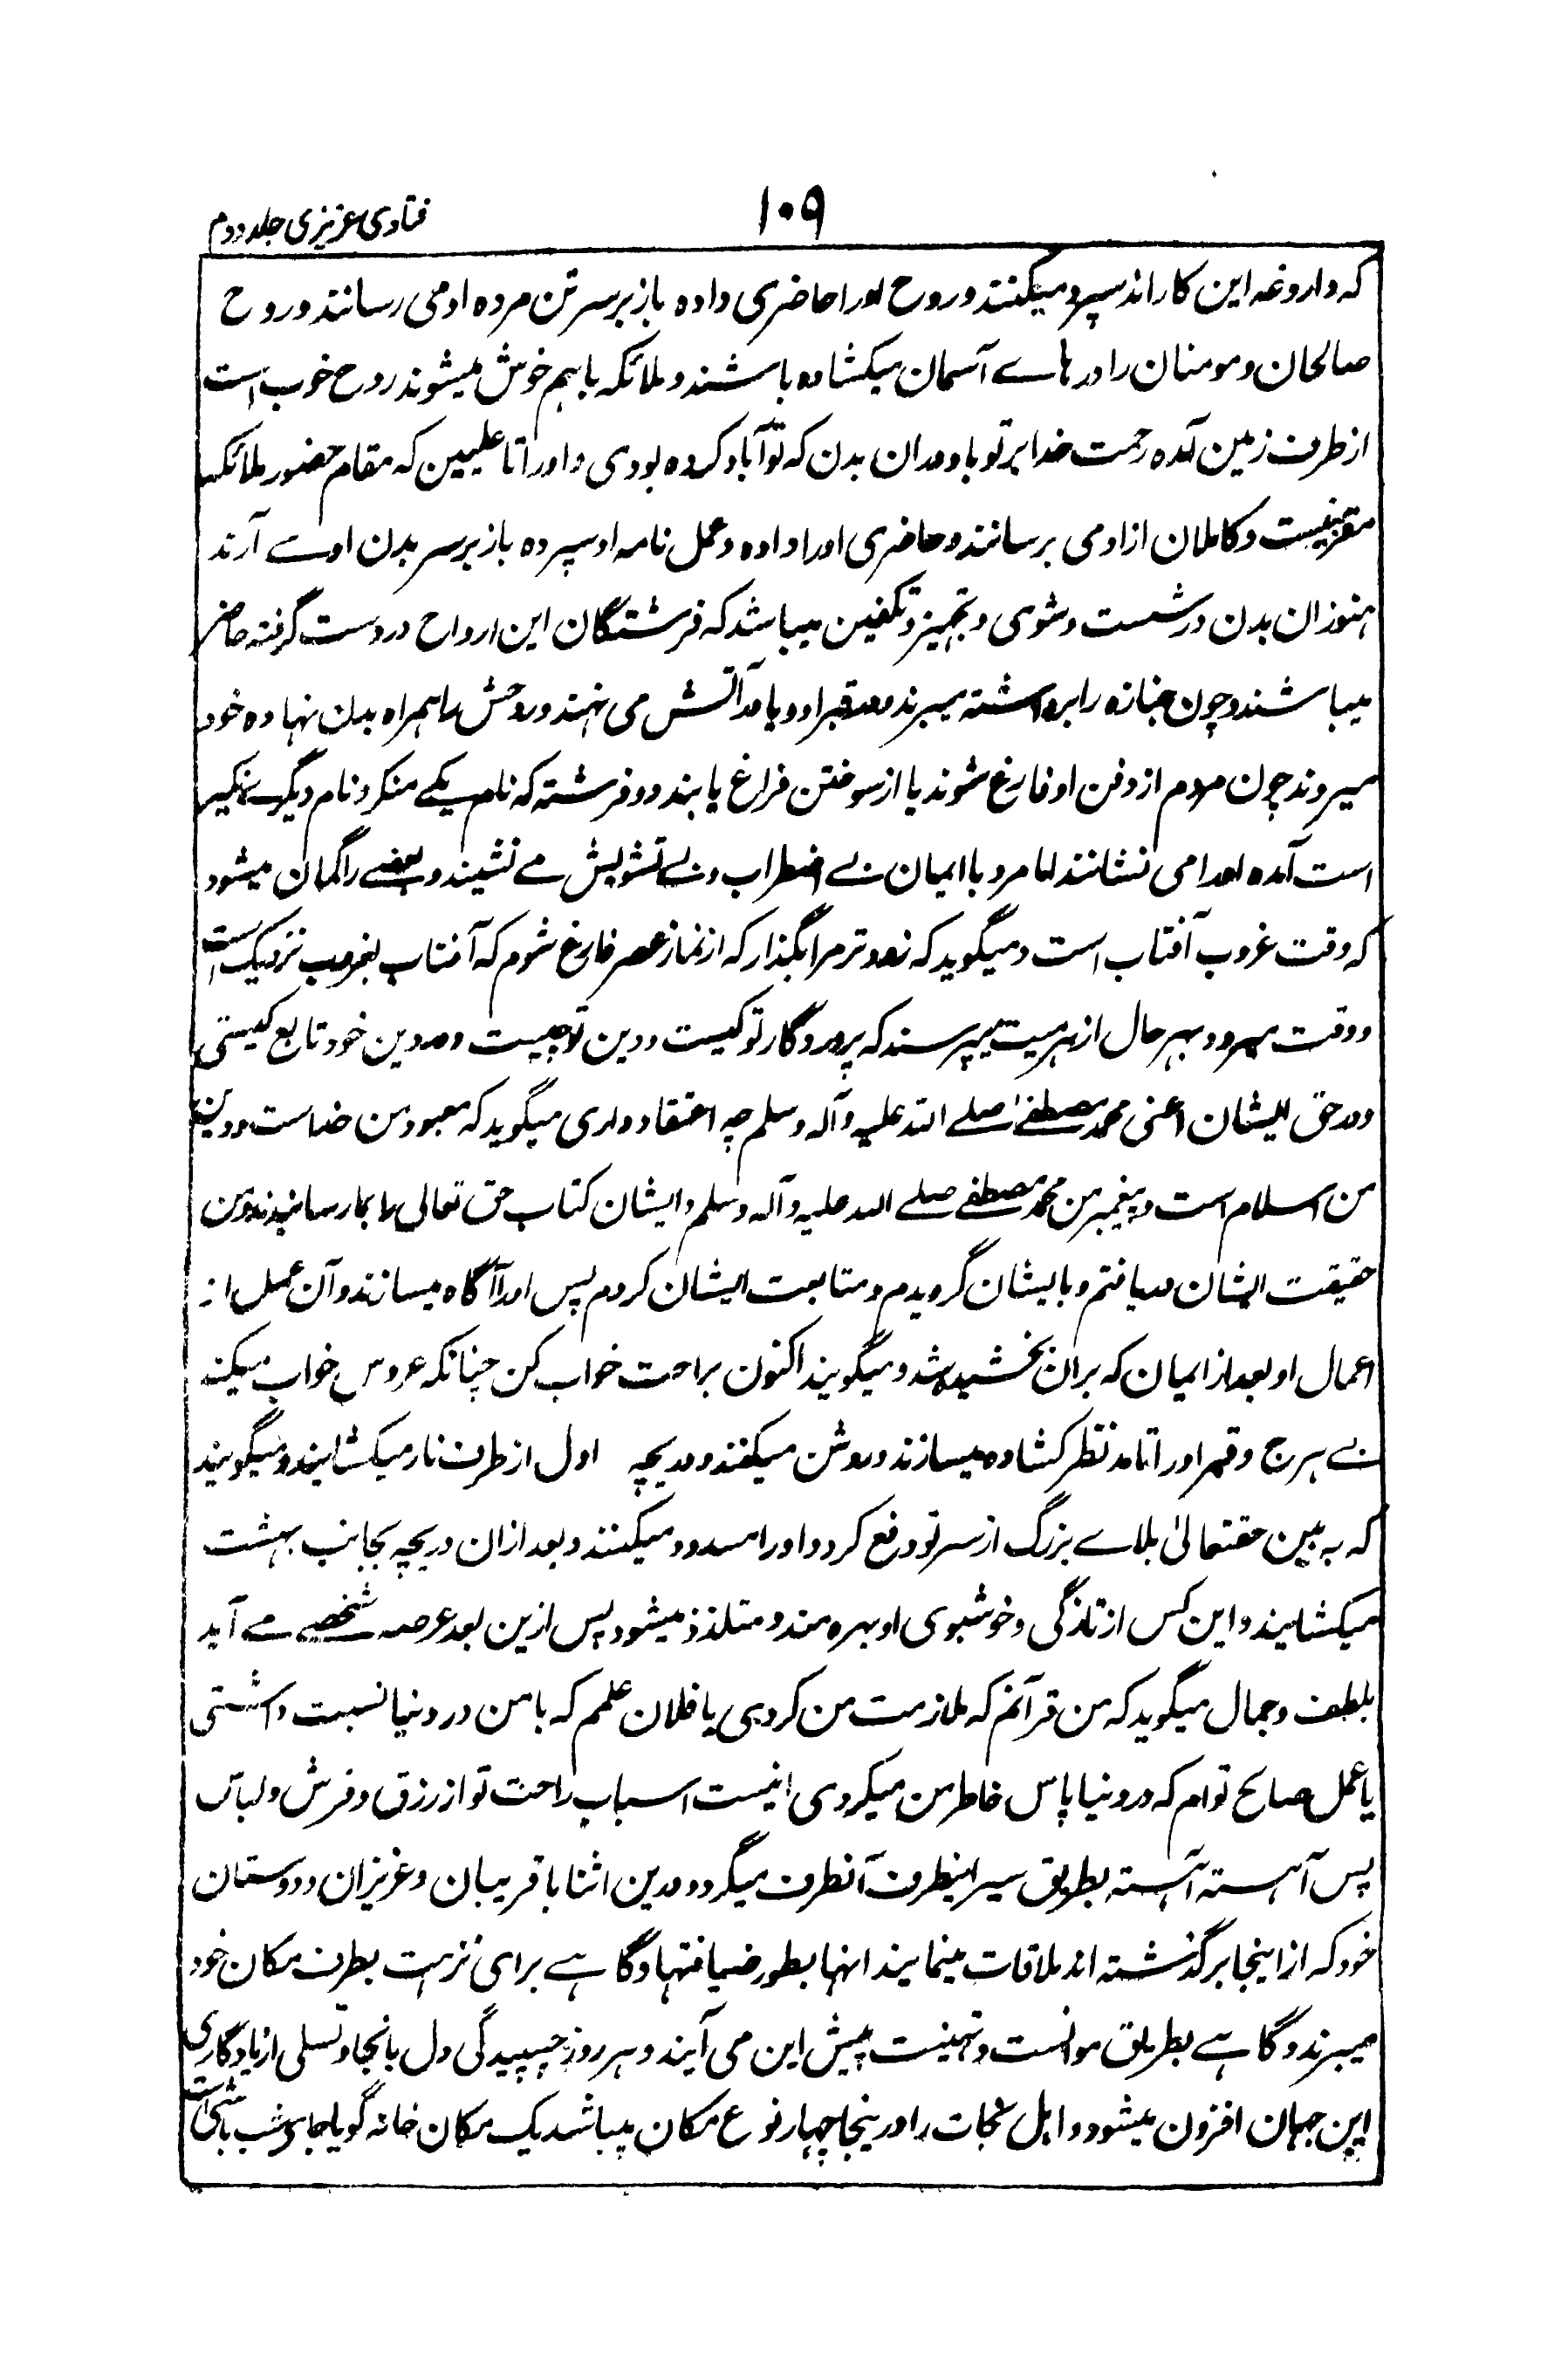 فتاوی عزیزی جلد دوم
۱۰۹
که داروغه این کار اند سپرد میکنند و روح او را حاضری داده باز بر سر تن مرده او می رسانند و روح
صالحان و مومنان را در هاے آسمان میکشاده باشند و ملائکه باهم خوش میشوند روح خوب است
از طرف زمین آمده رحمت خدا بر تو باد و بران بدن که تو آباد کرده بودی و او را تا علیین که مقام حضور ملائکه
مقربینست و کاملان از ادمی برسانند و حاضری او را داده و عمل نامه او سپرده باز بر سر بدن او مے آرند
هنوز ان بدن در شست و شوی و تجهیز و تکفین میباشد که فرشتگان این ارواح در دست گرفته حاضر
میباشند و چون جنازه را برداشته میبرند در قبر او و یا در آتش می نهند و روحش را همراه بدن نهاده خود
میروند چون مردم از دفن او فارغ شوند یا از سوختن فراغ یابند دو فرشته که نام یکے منکر و نام دیگرے نکیر
است آمده او را می نشانند اما مرد با ایمان بے اضطراب و بے تشویش مے نشیند و بعضے را گمان میشود
که وقت غروب آفتاب است و میگوید که زود تر مرا بگذار که از نماز عصر فارغ شوم که آفتاب بغروب نزدیک است
و وقت میرود بهر حال از هر میت میپرسند که پروردگار تو کیست و دین تو چیست و در دین خود تابع کیستی
و در حق ایشان اعنی محمد مصطفے صلے الله علیه و آله و سلم چه اعتقاد داری میگوید که معبود من خداست و دین
من اسلام است و پیغمبر من محمد مصطفے صلے الله علیه و آله و سلم و ایشان کتاب حق تعالی را بما رسانیدند و من
حقیقت ایشان دریافتم و بایشان گرویدم و متابعت ایشان کردم پس او را آگاه میسازند و آن عمل از
اعمال او بعد از ایمان که بران بخشیده شد و میگویند اکنون براحت خواب کن چنانکه عروس خواب میکند
بے هرج و قبر او را تا مد نظر کشاده میسازند و روشن میکنند و دریچه اول از طرف نار میکشایند و میگویند
که به بین حقتعالیٰ بلاے بزرگ از سر تو دفع کرد و او را مسدود میکنند و بعد ازان دریچه بجانب بهشت
میکشایند و این کس از تازگی و خوشبوی او بهره مند و متلذذ میشود پس ازین بعد عرصه شخصے مے آید
بلطف و جمال میگوید که من قرآنم که ملازمت من کردی یا فلان علمم که با من در دنیا نسبت داشتی
یا عمل صالح توام که در دنیا پاس خاطر من میکردی اینست اسباب راحت تو از رزق و فرش و لباس
پس آهسته آهسته بطریق سیر اینطرف آنطرف میگردد و درین اثنا با قریبان و عزیزان و دوستان
خود که از اینجا برگذشته اند ملاقات مینمایند انها بطور ضیافتها و گاهے برای نزهت بطرف مکان خود
میبرند و گاهے بطریق موانست و تهنیت پیش این می آیند و هر روز چسپیدگی دل بانجا و تسلی از یادگاری
این جهان افزون میشود و اهل نجات را درینجا چهار نوع مکان میباشد یک مکان خانه گویا جای شب باشی است